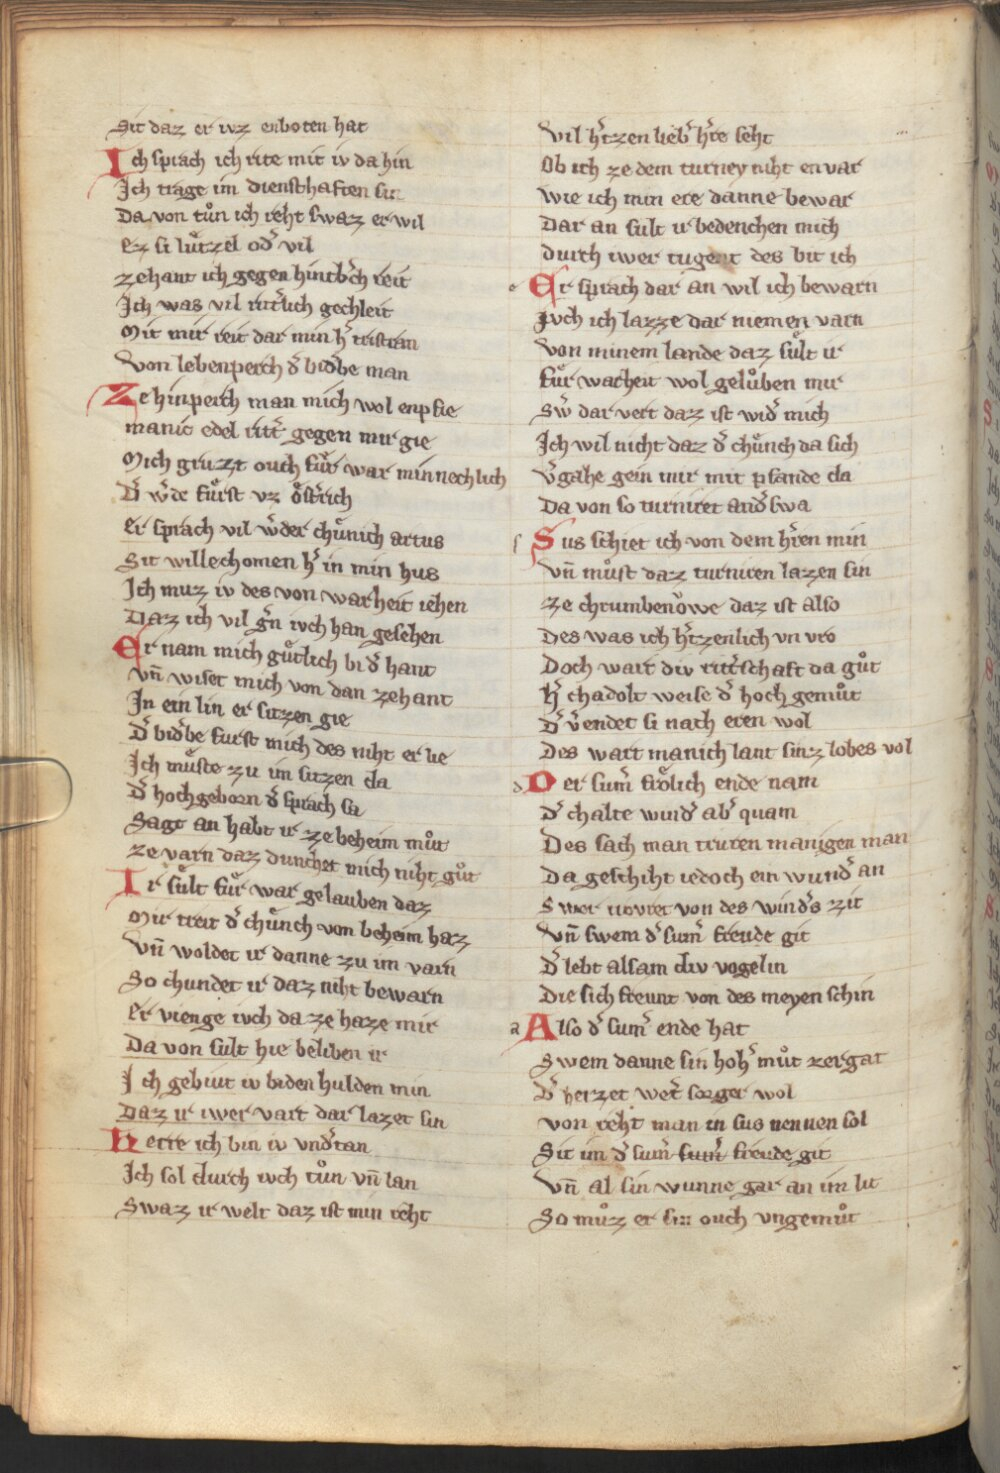 Sit daz er ivz enboten hat
Ich sprach ich rite mit iv da hin
Ich trage im diensthaften sin
Da von tůn ich reht swaz er wil
Ez si lůtzel od̾ vil
zehant ich gegen hintb̾ch reit
Ich was vil ritt̾lich gechleit
Mit mir reit dar min h̾ tristram
Von lebenperch d̾ bid̾be man
Ze hinperch man mich wol enpfie
manic edel ritt̾ gegen mir gie
Mich gruzt ouch fůr war minnechlich
D̾ w̾de fůrst vz ost̾rich
Er sprach vil w̾der chůnich artus
Sit willechomen h̾ in min hus
Ich muz iv des von warheit iehen
Daz ich vil g̾n ivch han gesehen
Er nam mich gůtlich bi d̾ hant
Vn̄ wiset mich von dan zehant
In ein lin er sitzen gie
D̾ bid̾be furst mich des niht er lie
Ich můste zu im sitzen da
D̾ hochgeborn d̾ sprach sa
Sagt an habt ir ze beheim můt
ze varn daz dunchet mich niht gůt
Ir sůlt fůr war gelauben daz
Mir treit d̾ chůnch von beheim haz
Vn̄ woldet ir danne zu im varn
So chundet ir daz niht bewarn
Er vienge ivch da ze haze mir
Da von sult hie beliben ir
Ich gebiut iv bi den hulden min
Daz ir iwer vart dar lazet sin
Herre ich bin iv vnd̾tan
Ich sol durch ivch tůn vn̄ lan
Swaz ir welt daz ist min reht
Vil h̾tzen lieb̾ h̾re seht
Ob ich ze dem turney niht en var
wie ich min ere danne bewar
Dar an sult ir bedenchen mich
durch iwer tugent des bit ich
e Er sprach dar an wil ich bewarn
Ivch ich lazze dar niemen varn
Von minem lande daz sůlt ir
fůr warheit wol gelůben mir
Sw̾ dar vert daz ist wid̾ mich
Ich wil nicht daz d̾ chůnch da sich
v̾gahe gein mir mit pfande da
Da von so turniret and̾swa
s Sus schiet ich von dem h̾ren min
Vn̄ můst daz turniren lazen sin
ze chrumbenowe daz ist also
Des was ich h̾tzenlich vn vro
Doch wart div ritt̾schaft da gůt
H̾ chadolt weise d̾ hoch gemůt
D̾ v̾endet si nach eren wol
Des wart manich lant sinz lobes vol
d Der sum̾ frŏlich ende nam
D̾ chalte wind̾ ab̾ quam
Des sach man truren manigen man
Da geschiht iedoch ein wund̾ an
Swer trovret von des wind̾s zit
Vn̄ swem d̾ sum̾ freude git
D̾ lebt alsam div vogelin
Die sich freunt von des meyen schin
a Also d̾ sum̾ ende hat
Swem danne sin hoh̾ můt zergat
D̾ herzet wet̾ sorger wol
von reht man in sus nennen sol
Sit im d̾ sum̾ sum̾ freude git
Vn̄ al sin wunne gar an im lit
So můz er sin ouch vngemůt